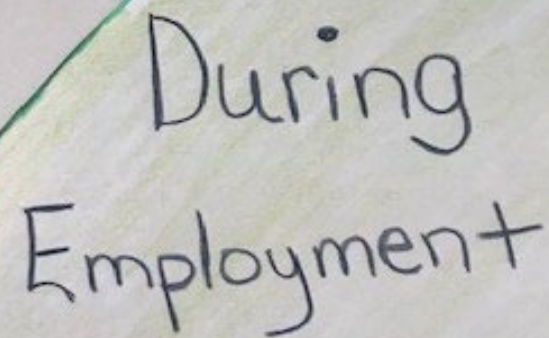 During
Employment